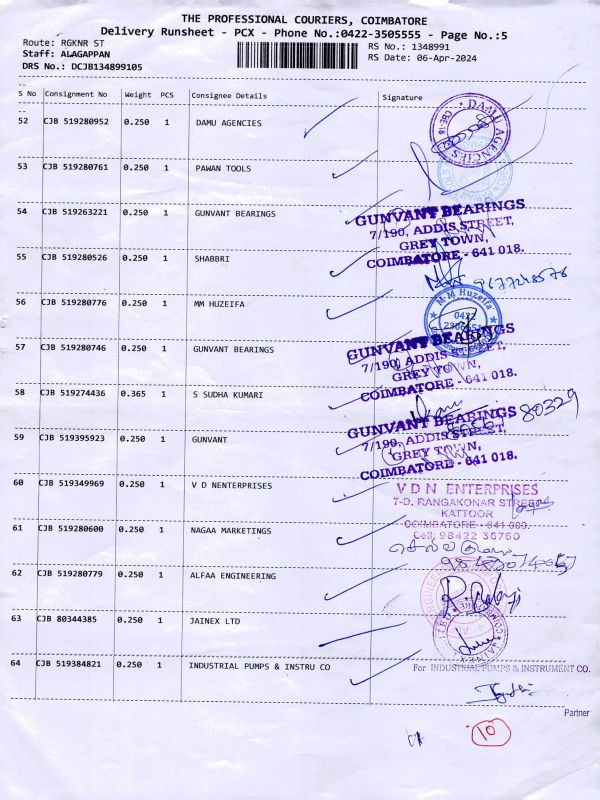 THE PROFESSIONAL COURIERS, COIMBATORE
Delivery Runsheet - PCX - Phone No.:0422-3505555 - Page No.:5
Route: RGKNR ST
RS No.: 1348991
Staff: ALAGAPPAN
RS Date: 06-Apr-2024
DRS No.: DCJB134899105
S No Consignment No Weight PCS Consignee Details Signature
52 CJB 519280952 0.250 1 DAMU AGENCIES
DAMU AGENCIES
CBE-18
53 CJB 519280761 0.250 1 PAWAN TOOLS
54 CJB 519263221 0.250 1 GUNVANT BEARINGS
GUNVANT BEARINGS
7/190, ADDIS STREET,
GREY TOWN,
COIMBATORE - 641 018.
55 CJB 519280526 0.250 1 SHABBRI
56 CJB 519280776 0.250 1 MM HUZEIFA
M M Huzeifa
0422
57 CJB 519280746 0.250 1 GUNVANT BEARINGS
GUNVANT BEARINGS
7/190, ADDIS STREET,
GREY TOWN,
COIMBATORE - 641 018.
58 CJB 519274436 0.365 1 S SUDHA KUMARI
80329
59 CJB 519395923 0.250 1 GUNVANT
GUNVANT BEARINGS
7/190, ADDIS STREET,
GREY TOWN,
COIMBATORE - 641 018.
60 CJB 519349969 0.250 1 V D NENTERPRISES
V D N ENTERPRISES
7-D, RANGAKONAR STREET
KATTOOR
COIMBATORE - 641 009.
Cell: 98422 36760
61 CJB 519280600 0.250 1 NAGAA MARKETINGS
62 CJB 519280779 0.250 1 ALFAA ENGINEERING
63 CJB 80344385 0.250 1 JAINEX LTD
64 CJB 519384821 0.250 1 INDUSTRIAL PUMPS & INSTRU CO
For INDUSTRIAL PUMPS & INSTRUMENT CO.
Partner
10